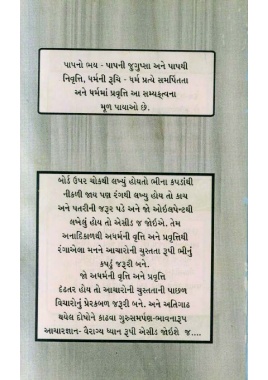 પાપનો ભય - પાપની જુગુપ્સા અને પાપથી
નિવૃત્તિ, ધર્મની રૂચિ - ધર્મ પ્રત્યે સમર્પિતતા
અને ધર્મમાં પ્રવૃત્તિ આ સમ્યક્ત્વના
મૂળ પાયાઓ છે.
બોર્ડ ઉપર ચોકથી લખ્યું હોયતો ભીના કપડાંથી
નીકળી જાય પણ રંગથી લખ્યુ હોય તો કાચ
અને પતરીની જરૂર પડે અને જો ઓઇલપેન્ટથી
લખેલું હોય તો એસીડ જ જોઇએ. તેમ
અનાદિકાળથી અધર્મની વૃત્તિ અને પ્રવૃત્તિથી
રંગાએલા મનને આચારોની ચુસ્તતા રૂપી ભીનું
કપડું જરૂરી બને.
જો અધર્મની વૃત્તિ અને પ્રવૃત્તિ
દૃઢતર હોય તો આચારોની ચુસ્તતાની પાછળ
વિચારોનું પ્રેરકબળ જરૂરી બને. અને અતિગાઢ
થયેલ દોષોને કાઢવા ગુરુસમર્પણ-ભાવનારૂપ
આચારજ્ઞાન- વૈરાગ્ય ધ્યાન રૂપી એસીડ જોઇશે જ....